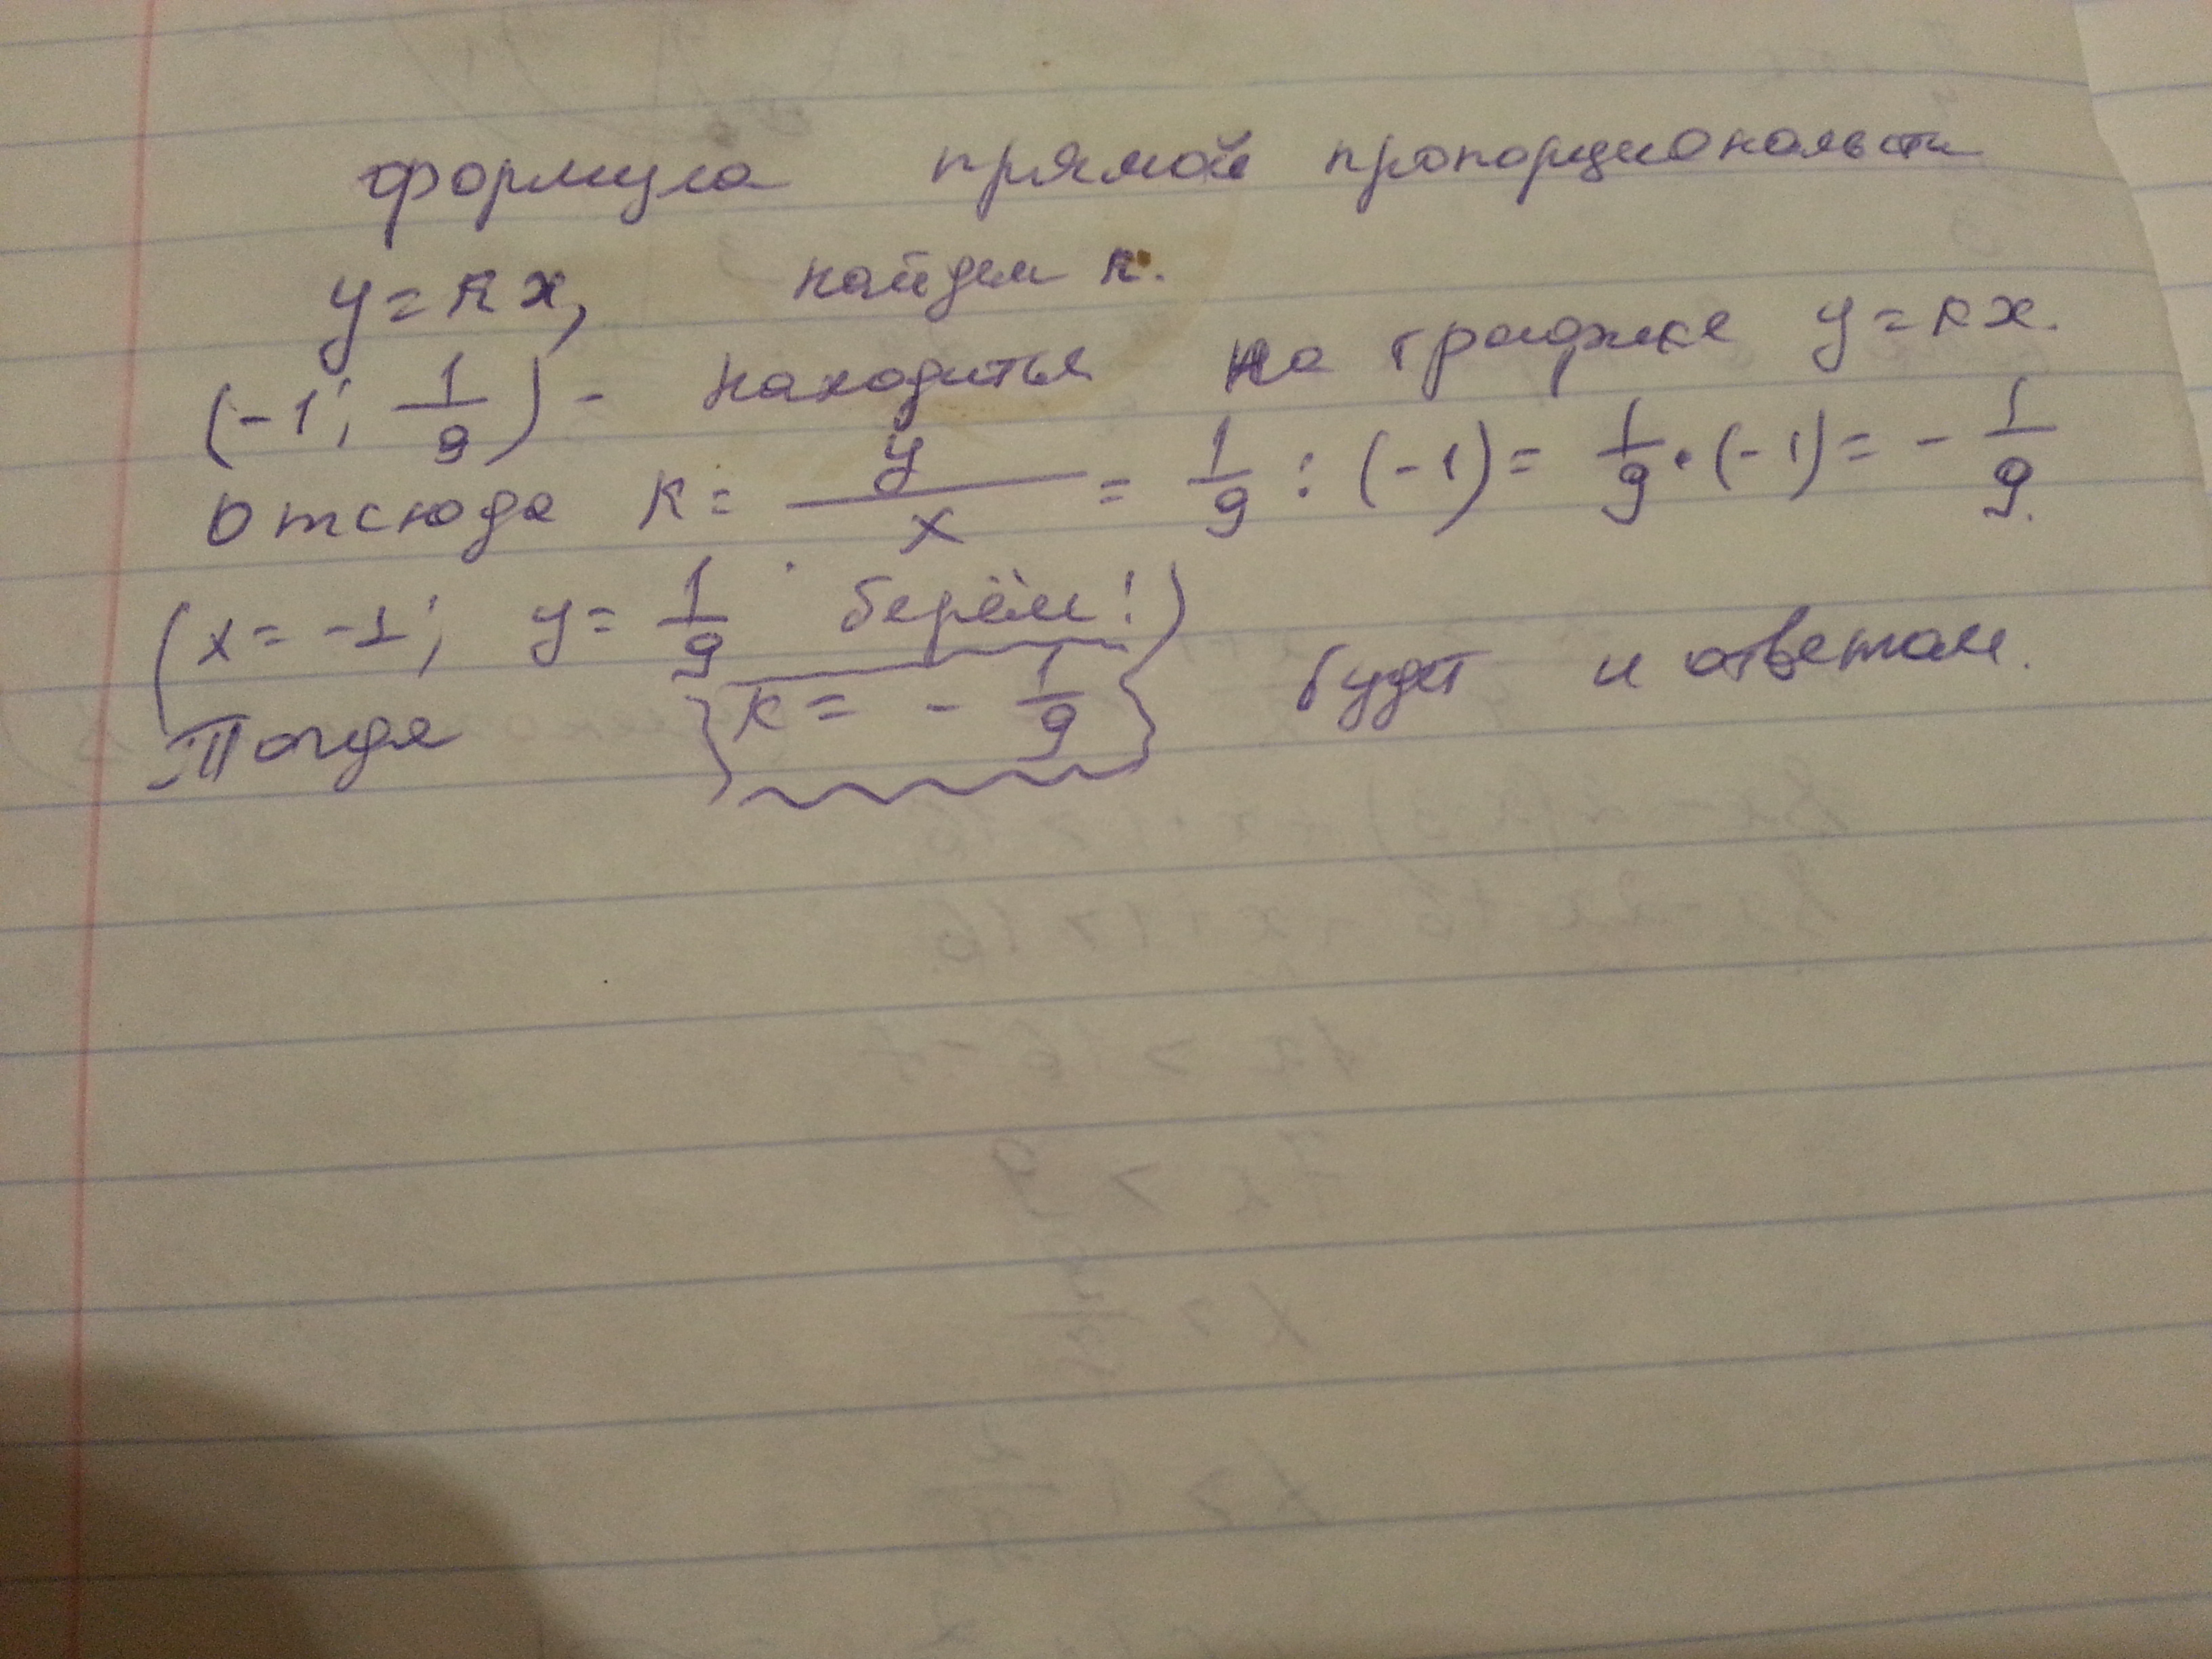 формула прямой пропорциональсти
y = kx, найдем k.
(-1; 1/9) - находиться на графике y = kx.
Отсюда k = y/x = 1/9 : (-1) = 1/9 · (-1) = - 1/9.
(x = -1; y = 1/9 берём!)
Тогда k = - 1/9 будет и ответом.